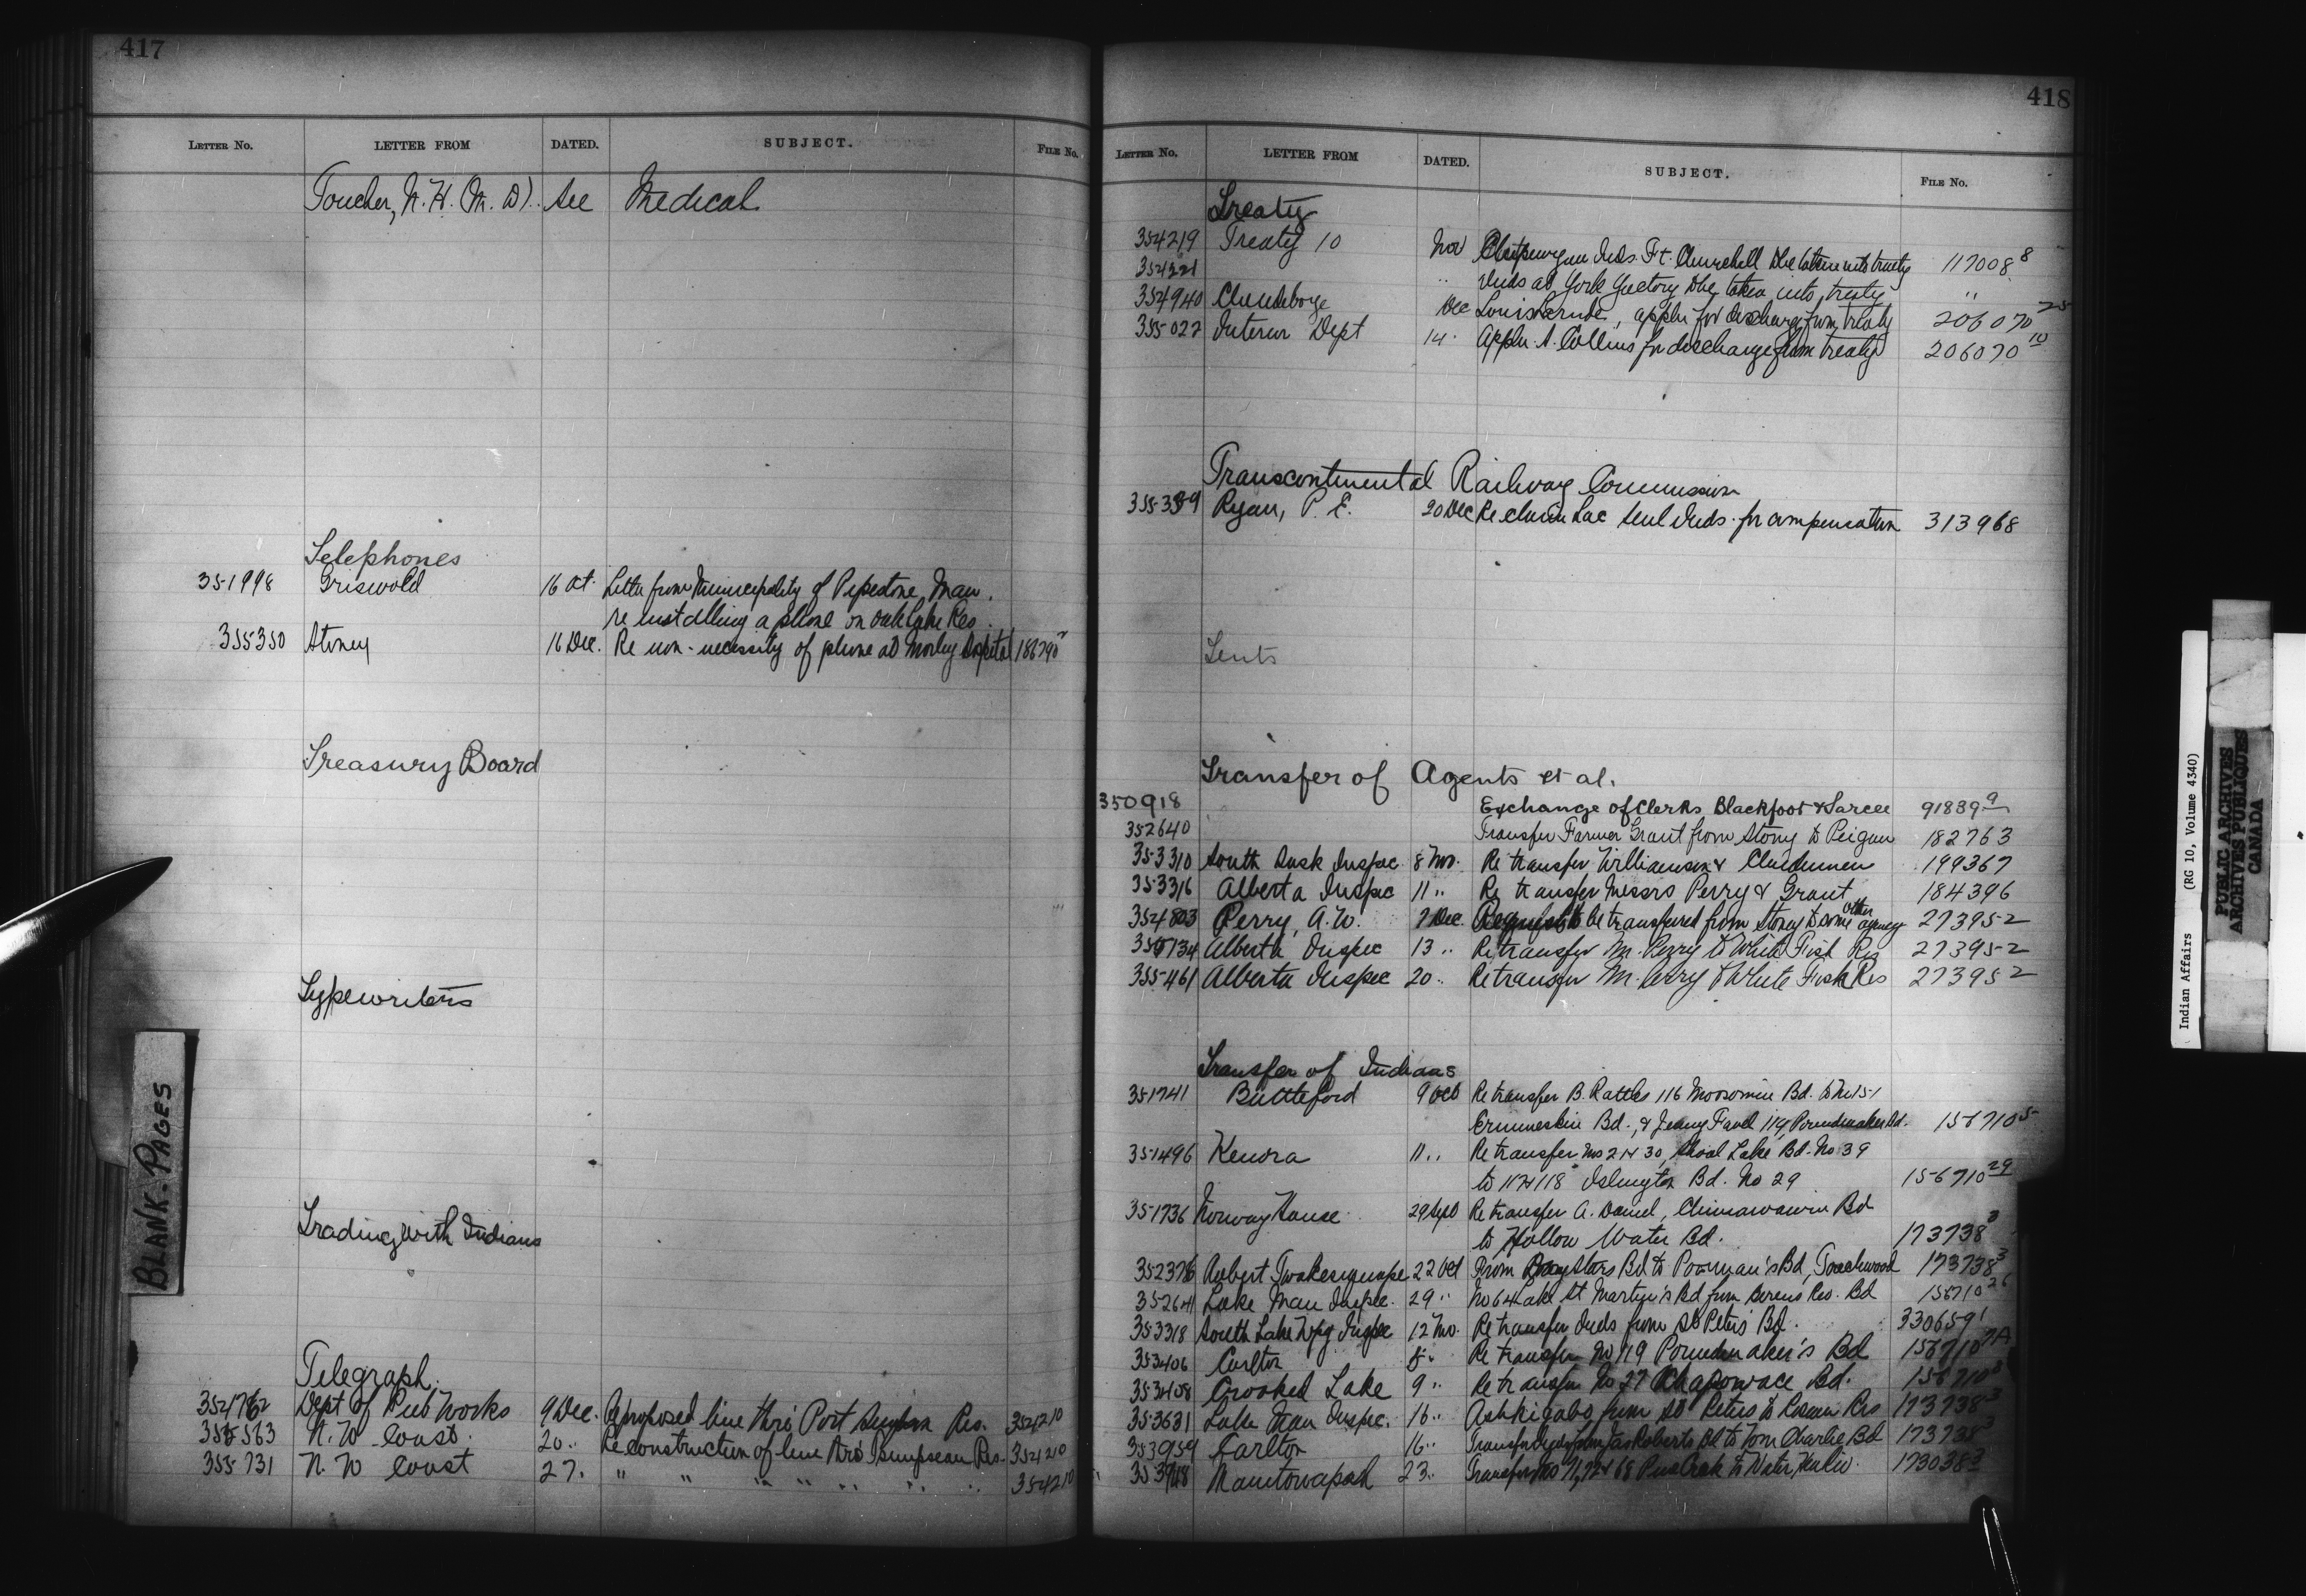 417
LETTER No. LETTER FROM DATED. SUBJECT. FILE No.
Toucher, N. H. (M. D). see Medical
Telephones
351998 Griswold 16 Oct. Letter from Municipality of Pipestone, Man.
re installing a phone on Oak Lake Res.
355350 Stoney 16 Dec. Re non-necessity of phone at Morley Hospital 186790
Treasury Board
Typewriters
Trading with Indians
Telegraph.
354762 Dept of Pub Works 9 Dec. Re proposed line thro' Port Simpson Res. 354210
355563 N. W. Coast. 20 .. Re construction of line thro' Tsimpsean Res. 354210
355731 N. W Coast 27. " " " " .. .. .. 354210
418
LETTER No. LETTER FROM DATED. SUBJECT. FILE No.
Treaty
354219 Treaty 10 Nov Chipewyan Inds. Ft. Churchill to be taken into treaty 117008 8
354221 .. Inds at York Factory to be taken into treaty "
354940 Clandeboye Dec Louis , appln for discharge from treaty 206070 25
355022 Interior Dept 14. Appln. A. Collins for discharge from treaty 206070 10
Transcontinental Railway Commission
355389 Ryan, P. E. 20 Dec Re claim Lac Seul Inds. for compensation 313968
Tents
Transfer of Agents et al.
350918 Exchange of Clerks Blackfoot & Sarcee 91839 9
352640 Transfer Farmer Grant from Stony to Peigan 182763
353310 South Sask Inspec 8 Nov. Re transfer Williamson & Cludunen 199367
353316 Alberta Inspec 11 .. Re transfer Messrs Perry & Grant 184396
354803 Perry, A. W. 7 Dec. Request to be transferred from Stoney to some other agency 273952
355134 Alberta Inspec 13 .. Re transfer Mr. Perry to White Fish Res 273952
355461 Alberta Inspec 20 .. Re transfer Mr. Perry to White Fish Res 273952
Transfer of Indians
351741 Battleford 9 Oct Re transfer B. Rattles 116 Moosomin Bd. to No 151
Ermineskin Bd., & Jenny Favel 119 Poundmaker Bd. 156710 5
351496 Kenora 11 .. Re transfer Nos 21 & 30, Shoal Lake Bd. No 39
to 117 & 118 Islington Bd. No 29 156710 29
351736 Norway House 29 Sept Re transfer A. Daniel, Chimawawin Bd
to Hollow Water Bd. 173738 3
352376 Robert 22 Oct From Day Stars Bd to Poorman's Bd, Touchwood 173738 3
352641 Lake Man Inspec. 29 .. No 64 Lake St Martin's Bd from Berens Riv. Bd 156710 26
353318 South Lake Wpg Inspec 12 Nov. Re transfer Inds from St Peter's Bd. 330659 1
353406 Carlton 5 .. Re transfer No 119 Poundmaker's Bd 156710 7A
353408 Crooked Lake 9 .. Re transfer No 27 Chapowace Bd. 156710 8
353631 Lake Man Inspec. 16 .. Ashkigabo from St Peters to Roseau Res 173738 3
353959 Carlton 16 .. Transfer from Jas Roberts Bd to Wm Charles Bd 173738 3
353918 Manitowapah 23 .. Transfer Nos 71, 72 & 68 Pine Creek to Water Hen Riv. 173038 3
BLANK PAGES
Indian Affairs (RG 10, Volume 4340)
PUBLIC ARCHIVES
ARCHIVES PUBLIQUES
CANADA